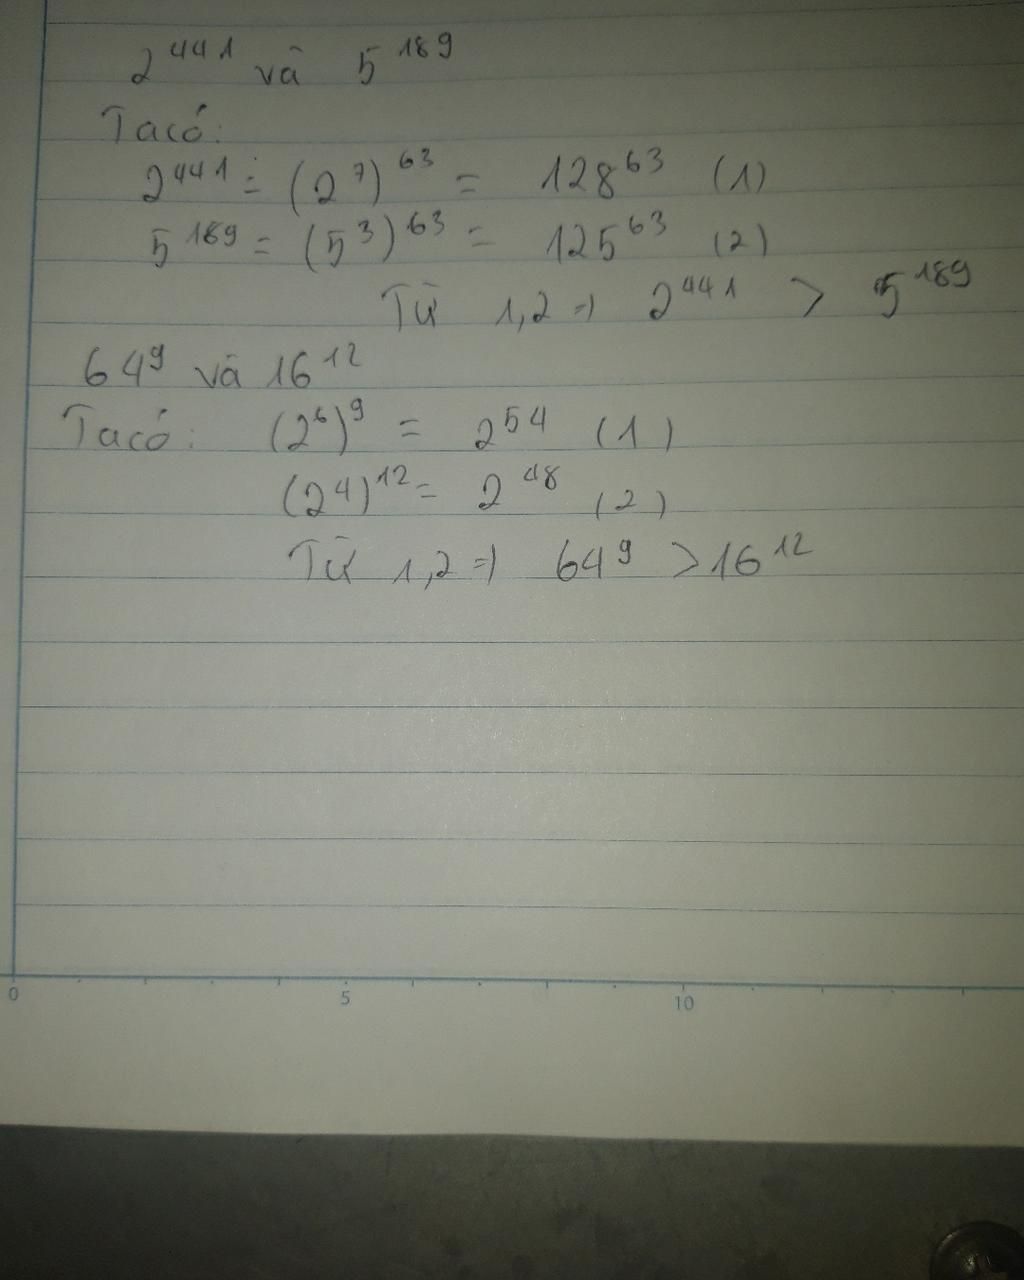 2⁴⁴¹ và 5¹⁸⁹
Ta có:
2⁴⁴¹ = (2⁷)⁶³ = 128⁶³ (1)
5¹⁸⁹ = (5³)⁶³ = 125⁶³ (2)
Từ 1,2 => 2⁴⁴¹ > 5¹⁸⁹
64⁹ và 16¹²
Ta có: (2⁶)⁹ = 2⁵⁴ (1)
(2⁴)¹² = 2⁴⁸ (2)
Từ 1,2 => 64⁹ > 16¹²
0 5 10